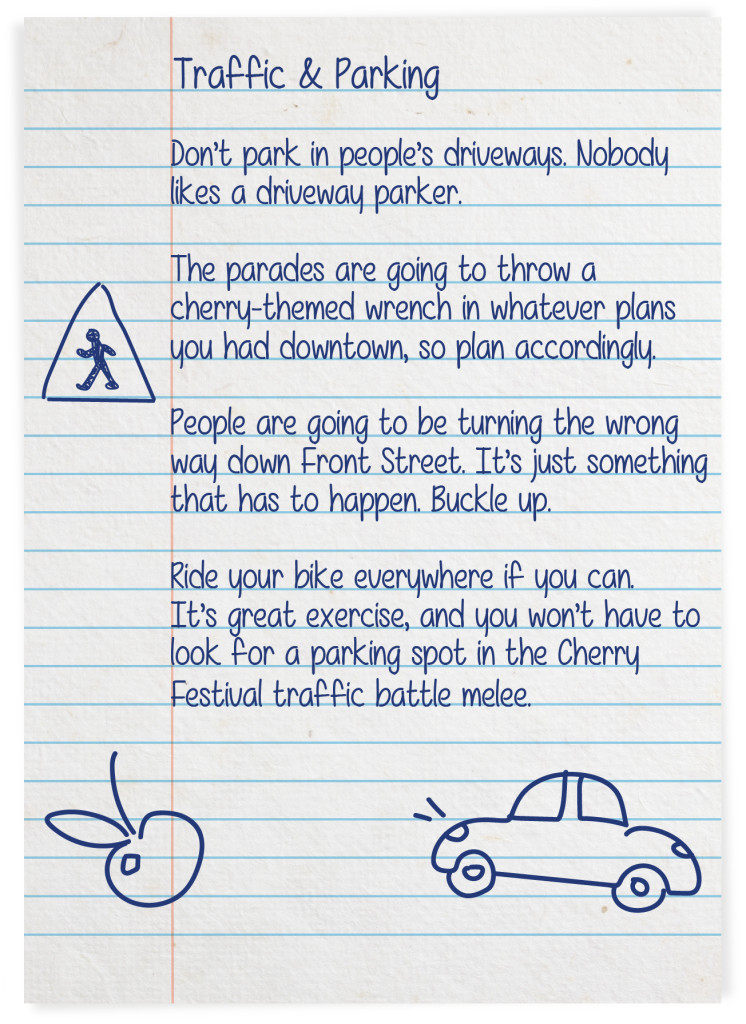 Traffic & Parking
Don't park in people's driveways. Nobody
likes a driveway parker.
The parades are going to throw a
cherry-themed wrench in whatever plans
you had downtown, so plan accordingly.
People are going to be turning the wrong
way down Front Street. It's just something
that has to happen. Buckle up.
Ride your bike everywhere if you can.
It's great exercise, and you won't have to
look for a parking spot in the Cherry
Festival traffic battle melee.